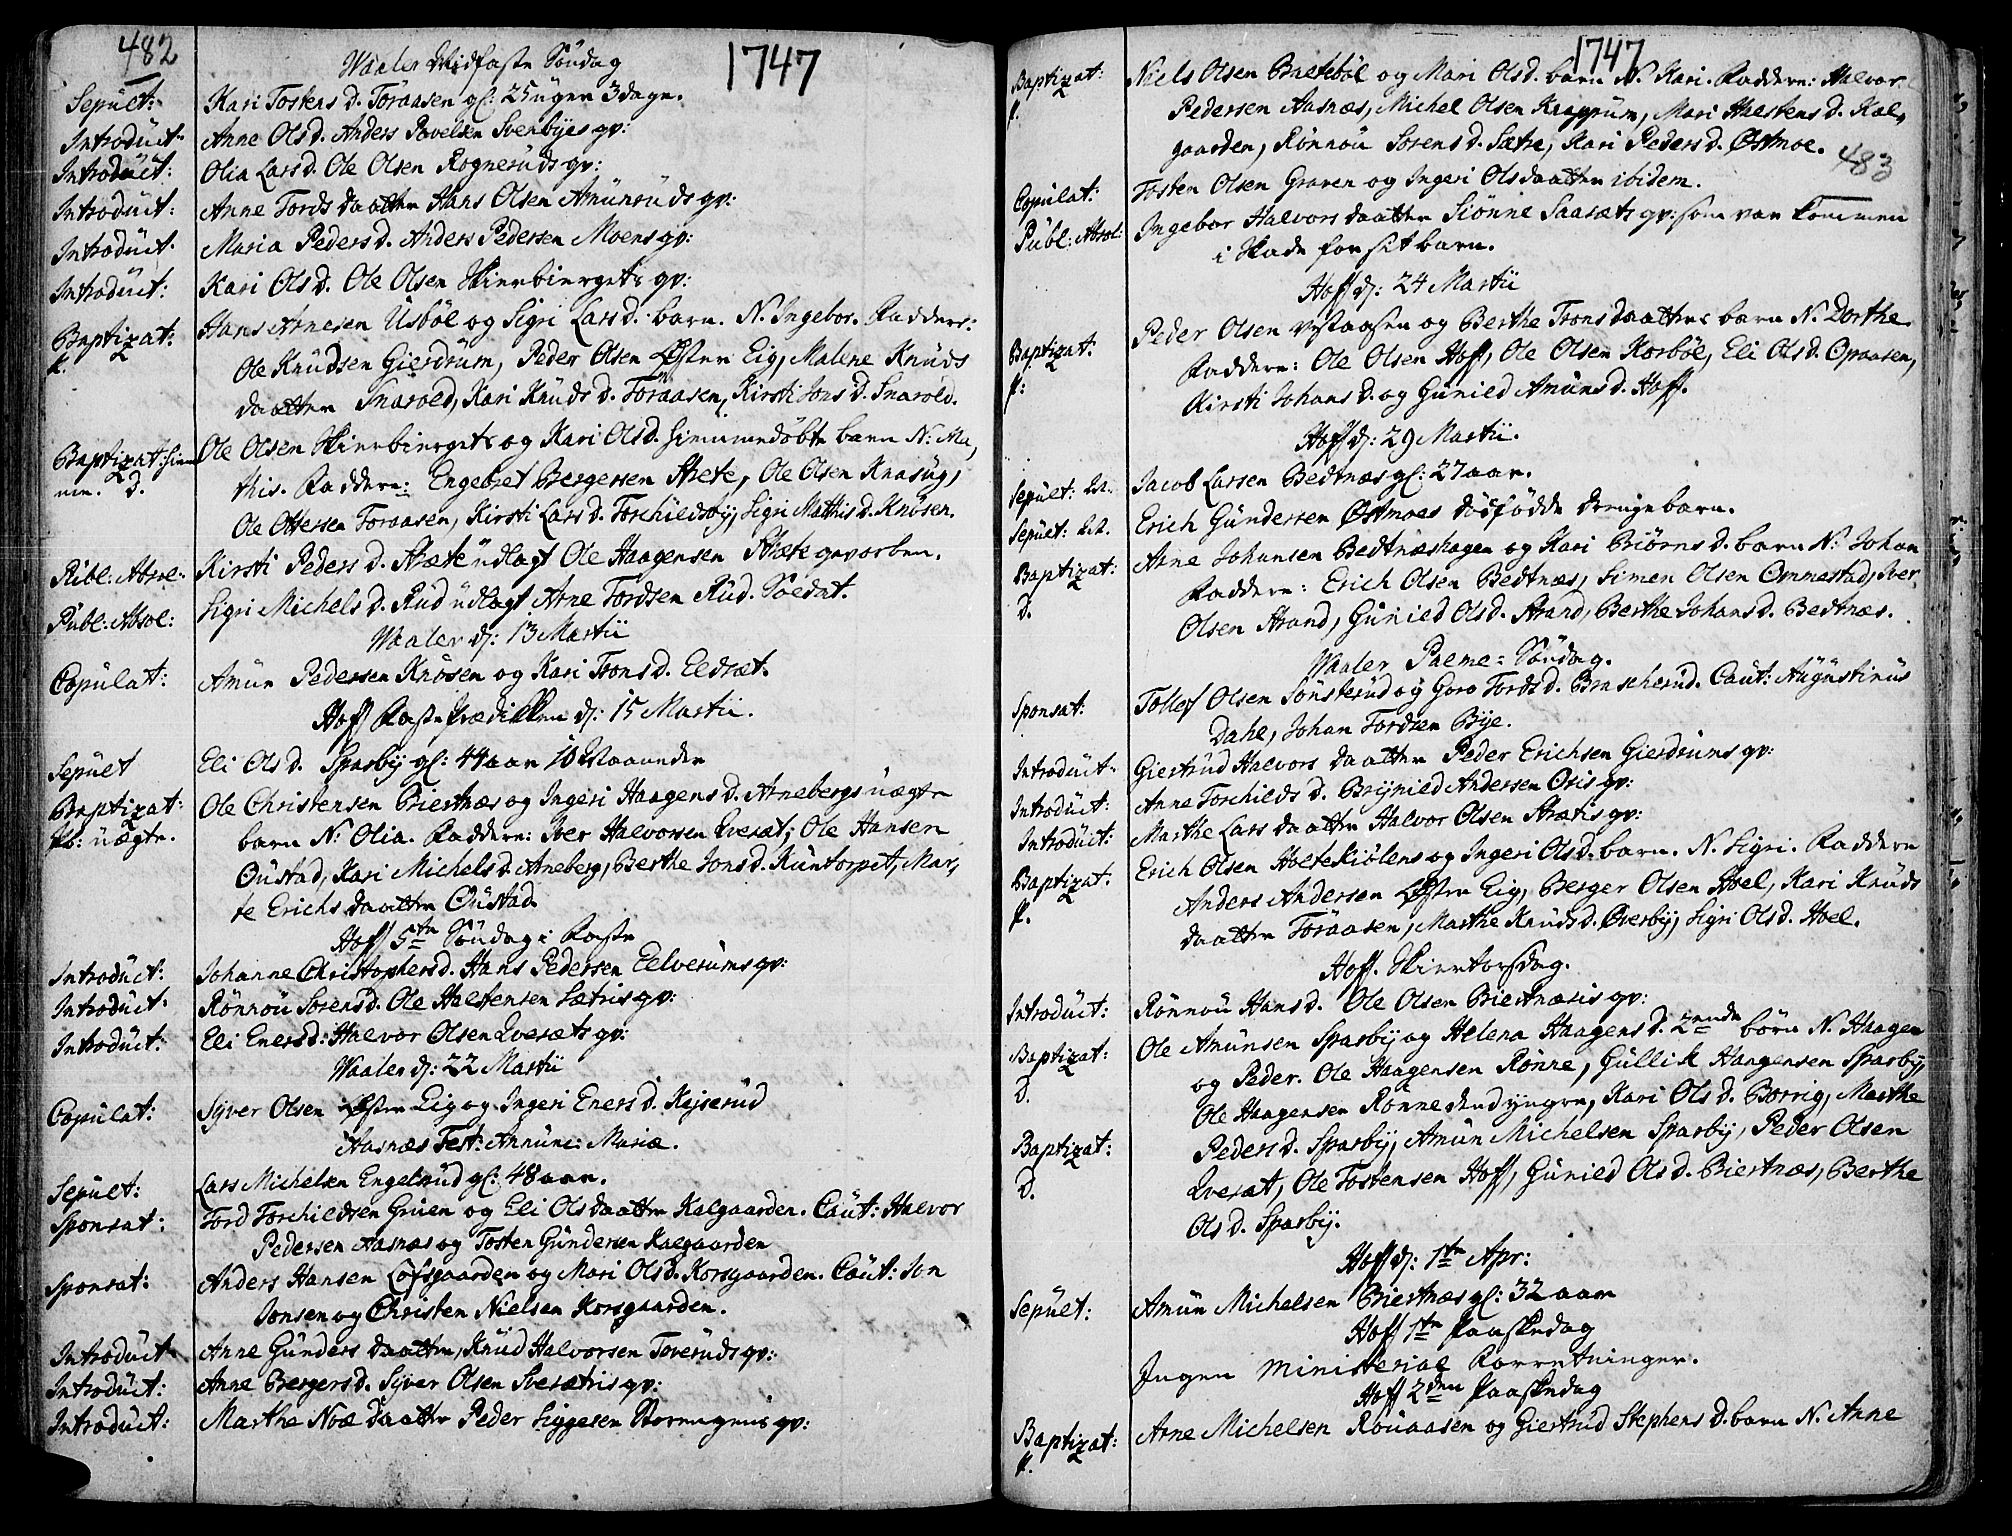 482
1747
Waaler Midfaste Söndag
Sepult: Kari Tostens d. Toraasen gl: 25 uger 3 dage.
Introduct: Anne Ols d. Anders Povelsen Svenbyes qv:
Introduct: Olia Lars d. Ole Olsen Rogneruds qv:
Introduct: Anne Tords daatter Hans Olsen Amunruds qv:
Introduct: Maria Peders d. Anders Pedersen Moens qv:
Introduct: Kari Ols d. Ole Olsen Skierbiergets qv:
Baptizat: Hans Arnesen Usböl og Sigri Lars d. barn. N. Ingebor. Fadders:
P. Ole Knudsen Gierdrum, Peder Olsen Østre Eig, Malene Knuds
daatter Snarold, Kari Knuds d. Toraasen, Kirsti Jons d. Snarold.
Baptizat: hiem Ole Olsen Skierbiergets og Kari Ols d. hiemmedöbte barn N: Ma,
me. D. this. Faddere: Engebret Bergersen Stræte, Ole Olsen Knasug,
Ole Ottersen Toraasen, Kirsti Lars d. Torchildsby, Sigri Matthis d. Knösen.
Publ: Absol: Kirsti Peders d. Stræte udlagt Ole Haagensen Stræte gevorben.
Publ: Absol: Sigri Michels d. Rud udlagt Arne Tordsen Rud. Soldat.
Waaler d: 13 Martii
Copulat: Amun Pedersen Knösen og Kari Trons d. Eldræt.
Hoff Fasteprædikken d: 15 Martii.
Sepult Eli Ols d. Sparby gl: 44 aar 10 Maaneder
Baptizat: Ole Christensen Biertnæs og Ingeri Haagens d. Arnebergs uægte
P.: uægte. barn N: Olia. Faddere: Iver Halvorsen Qveræt, Ole Hansen
Oustad, Kari Michels d. Arneberg, Berthe Jons d. Kuntorpet, Mar,
te Erichs daatter Oustad
Hoff 5te Söndag i Faste
Introduct: Johanne Christophers d. Hans Pedersen Eelverums qv:
Introduct: Rönnou Sorens d. Ole Halstensen Sætris qv:
Introduct: Eli Eners d: Halvor Olsen Qveræts qv:
Waaler d: 22 Martii
Copulat: Syver Olsen Østre Eig og Ingeri Eners d. Kejserud
Aasnæs Fest: Annunc: Mariæ.
Sepult: Lars Michelsen Engelrud gl: 48 aar.
Sponsat: Tord Torchildsen Gruen og Eli Olsdaatter Kalgaarden. Caut: Halvor
Pedersen Aasnæs og Tosten Gundersen Kalgaarden
Sponsat: Anders Hansen Lofsgaarden og Mari Ols d. Korsgaarden. Caut: Jon
Jonsen og Christen Nielsen Korsgaarden.
Introduct Anne Gunders daatter, Knud Halvorsen Toveruds qv:
Introduct: Anne Bergers d. Syver Olsen Sverætris qv:
Introduct: Marthe Noe daatter Peder Siggesen Storengens qv:
1747
483
Baptizat: Niels Olsen Balteböl og Mari Ols d. barn N. Kari. Faddere: Halvor
P. Pedersen Aasnæs, Michel Olsen Krappum, Mari Halstens d. Kal,
gaarden, Rönnou Sorens d. Sætre, Kari Peders d. Østmoe.
Copulat: Tosten Olsen Graven og Ingeri Olsdaatter ibidem.
Publ: Absol: Ingebor Halvors daatter Siönne Saaræts qv: som var kommen
i skade for sit barn.
Hoff d: 24 Martii
Baptizat: Peder Olsen Vestaasen og Berthe Trons daatters barn N. Dorthe
P: Faddere: Ole Olsen Hoff, Ole Olsen Korböl, Eli Ols d. Opaasen,
Kirsti Johans d. og Gunild Amuns d. Hoff.
Hoff d: 29 Martii.
Sepult: Jacob Larsen Bedtnæs gl: 27 aar.
Sepult: Erich Gundersen Østmoes dödfödde drenge barn.
Baptizat: Arne Johansen Bedtnæshagen og Kari Briörns d. barn N: Johan
D. Faddere: Erich Olsen Bedtnæs, Simen Olsen Ommestad, Iver
Olsen Strand, Gunild Ols d. Strand, Berthe Johans d. Bedtnæs.
Waaler Palme-Söndag.
Sponsat: Tollef Olsen Sönsterud og Goro Tords d. Brascherud. Caut: Augustinus
Dahl, Johan Tordsen Bye.
Introduct: Giertrud Halvors daatter Peder Erichsen Gierdrums qv:
Introduct: Anne Torchilds d. Brynild Andersen Osis qv:
Introduct: Marthe Lars daatter Halvor Olsen Strætis qv:
Baptizat: Erich Olsen Holtekiölens og Ingeri Ols d. barn. N. Sigri. Faddere
P. Anders Andersen Østre Eig, Berger Olsen Hoel, Kari Knuds
daatter Toraasen, Marthe Knuds d. Overby, Sigri Ols d. Hoel.
Hoff. Skiertorsdag.
Introduct: Rönnou Hans d. Ole Olsen Biertnæsis qv:
Baptizat: Ole Amunsen Sparby og Helena Haagens d. 2nde börn N. Haagen
D. og Peder. Ole Haagensen Rönne, Gullik Haagensen Sparby,
Ole Haagensen Rönne dend yngre, Kari Ols d. Borrig, Marthe
Baptizat: Peders d. Sparby, Amun Michelsen Sparby, Peder Olsen
D. Qveræt, Ole Tostensen Hoff, Gunild Ols d. Biertnæs, Berthe
Ols d. Sparby.
Hoff d: 1te Apr:
Sepult: Amun Michelsen Biertnæs gl: 32 aar
Hoff 1te Paaskedag
Ingen Ministerial Forretninger.
Hoff 2den Paaskedag
Baptizat: Arne Michelsen Rouaasen og Giertrud Stephens d. barn N. Anne
P.